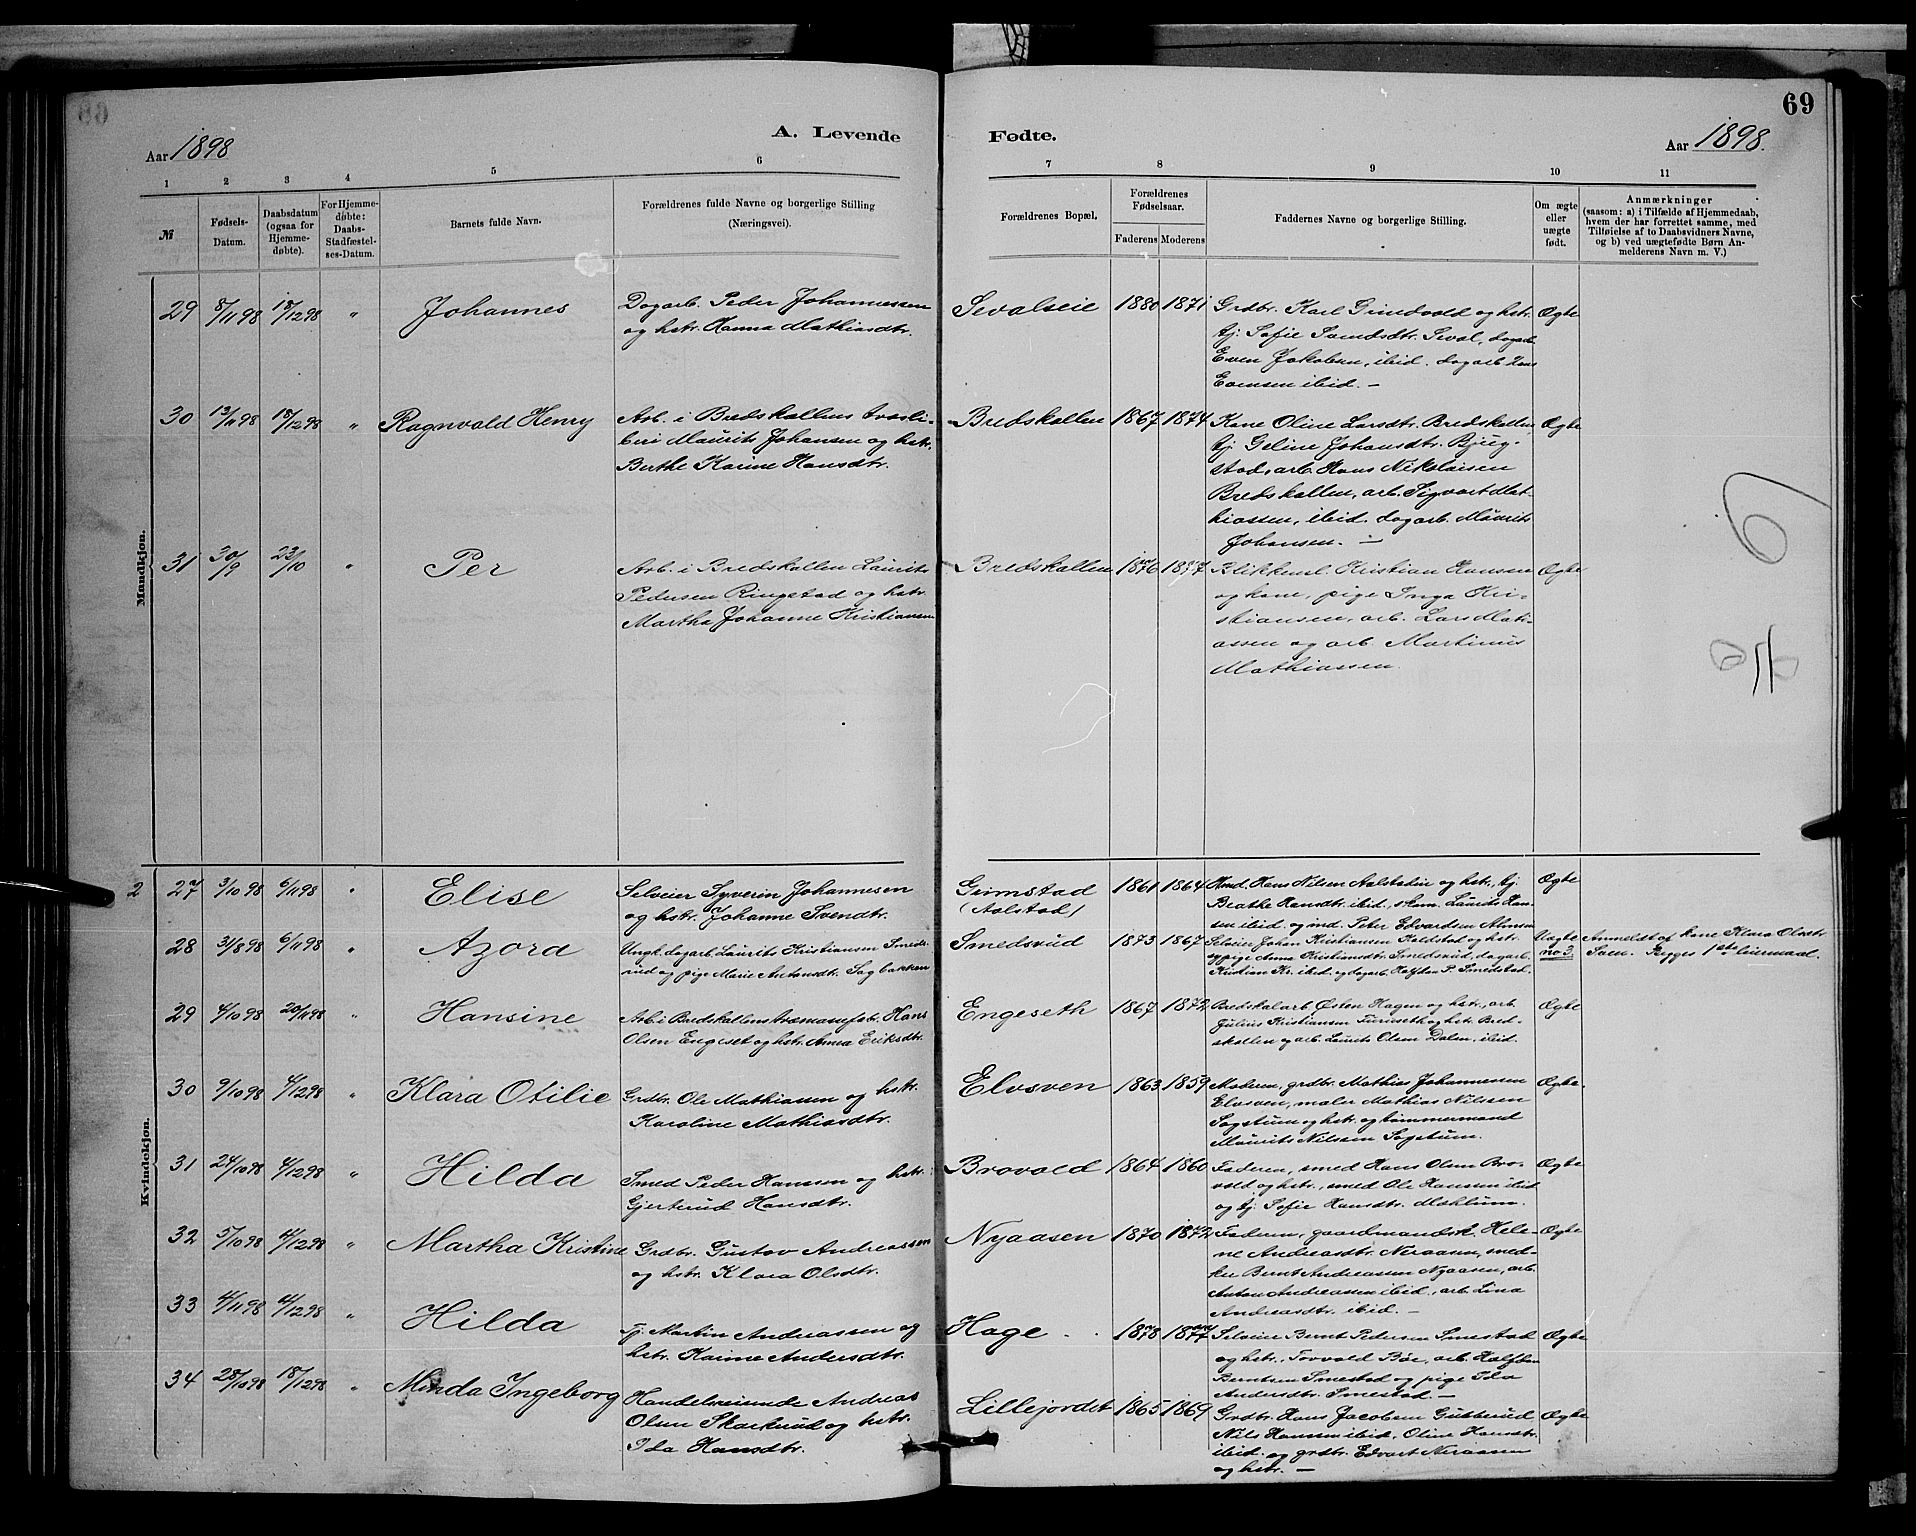 69
A. Levende Fødte.
Aar 1898
Aar 1898.
1 2 3 4 5 6 7 8 9 10 11
№
Fødsels-Datum.
Daabsdatum (ogsaa for Hjemme-døbte).
For Hjemme-døbte: Daabs-Stadfæstel-ses-Datum.
Barnets fulde Navn.
Forældrenes fulde Navne og borgerlige Stilling
(Næringsvei).
Forældrenes Bopæl.
Forældrenes Fødselsaar.
Faderens Moderens
Faddernes Navne og borgerlige Stilling.
Om ægte eller uægte født.
Anmærkninger
(saasom: a) i Tilfælde af Hjemmedaab,
hvem der har forrettet samme, med
Tilføielse af to Daabsvidners Navne,
og b) ved uægtefødte Børn An-
melderens Navn m. V.)
Mandkjøn.
29 8/11 98 18/12 98 " Johannes
Dagarb. Peder Johannessen
og hstr. Hanna Mathiasdtr.
Sevalseie 1880 1871
Grdbr. Karl Grindvold og hstr.
tj. Sofie Svendsdtr. Seval, dagarb.
Even Jakobsen, ibid. dagarb. Lars
Evensen ibid. —
Ægte
30 13/11 98 18/12 98 " Ragnvald Henry
Arb. i Bredskallens træsli-
beri Maurits Johansen og hstr.
Berthe Karine Hansdtr.
Bredskallen 1867 1874
Kone Oline Larsdtr. Bredskallen,
tj. Geline Johansdtr. Bjug-
stad, arb. Hans Nikolaisen
Bredskallen, arb. Sigvart Mat-
hiassen, ibid. dagarb. Maurits
Johansen. —
Ægte
31 30/9 23/10 " Per
Arb. i Bredskallen Laurits
Pedersen Ringstad og hstr.
Martha Johanne Kristiansen
Bredskallen 1876 1877
Blikkensl. Kristian Hansen
og kone, pige Inga Kri-
stiansen, arb. Lars Mati-
assen og arb. Martinus
Mathiassen.
Ægte
Kvindekjøn.
2
27 3/10 98 6/11 98 " Elise
Selveier Syverin Johannesen
og hstr. Johanne Svendtr.
Grimstad
(Aalstad)
1861 1864
Hans Nilsen og hstr., tj.
Beathe Hansdtr. ibid, Laurits Han-
sen ibid. og ind. Peter Edvardsen
Ægte
28 31/8 98 6/11 98 " Azora
Ungk. dagarb. Laurits Kristiansen Smeds-
rud og pige Marie Antonsdtr. Sagbakken
Smedsrud 1873 1867
Selveier Johan Kristiansen Kalstad og hstr.
og pige Anna Kristiansdtr. Smedsrud, dagarb.
Kristian Kr. ibid. og dagarb. Halfdan P. Smedstad.
Uægte
no 3.
Anmeldt af kone Klara Olsdtr.
Begges 1ste leiermaal.
29 4/10 98 20/11 98 " Hansine
Arb. i Bredskallens træmassefab. Hans
Olsen Engeset og hstr. Anna Eriksdtr.
Engeseth 1867 1872
Bredskal arb. Østen Hagen og hstr., arb.
Julius Kristiansen Furuseth og hstr. Bred-
skallen og arb. Laurits Olsen Dalen, ibid.
Ægte
30 9/10 98 4/12 98 " Klara Otilie
Grdbr. Ole Mathiassen og hstr.
Karoline Mathiasdtr.
Elvsven 1863 1859
Moderen, grdbr. Mathias Johannesen
Elvsven, maler Mathias Nilsen
Sagstuen og hstr. og tømmermand
Maurits Nilsen Sagstuen.
Ægte.
31 24/10 98 4/12 98 " Hilda
Smed Peder Hansen og hstr.
Gjertrud Hansdtr.
Brovold 1864 1860
Faderen, smed Hans Olsen Bro-
vold og hstr., smed Ole Hansen ibid
og tj. Sofie Hansdtr. Mæhlum.
Ægte
32 5/10 98 4/12 98 " Martha Kristine
Grdbr. Gustav Andreassen
og hstr. Klara Olsdtr.
Nyaasen 1870 1872
Faderen, gaardmandsk. Hele-
ne Andreasdtr. Neraasen, sned-
ker Bernt Andreassen Nyaasen, arb.
Anton Andreassen ibid., arb. Lina
Andreasdtr. ibid. —
Ægte
33 4/11 98 11/12 98 " Hilda
Tj. Martin Andreassen og
hstr. Karine Andersdtr.
Hage 1878 1877
Selveier Bernt Pedersen Smestad
og hstr., Torvald Bøe, arb. Halfdan
Berntsen Smestad og pige Ida
Andersdtr. Smestad. —
Ægte
34 28/10 98 18/12 98 " Minda Ingeborg
Handelsreisende Andreas
Olsen Skarterud og hstr.
Ida Hansdtr.
Lillejordet 1865 1869
Grdbr. Hans Jacobsen Gubberud
Nils Hansen ibid., Oline Hansdtr.
ibid. og grdbr. Edvart Neraasen
og hstr. —
Ægte